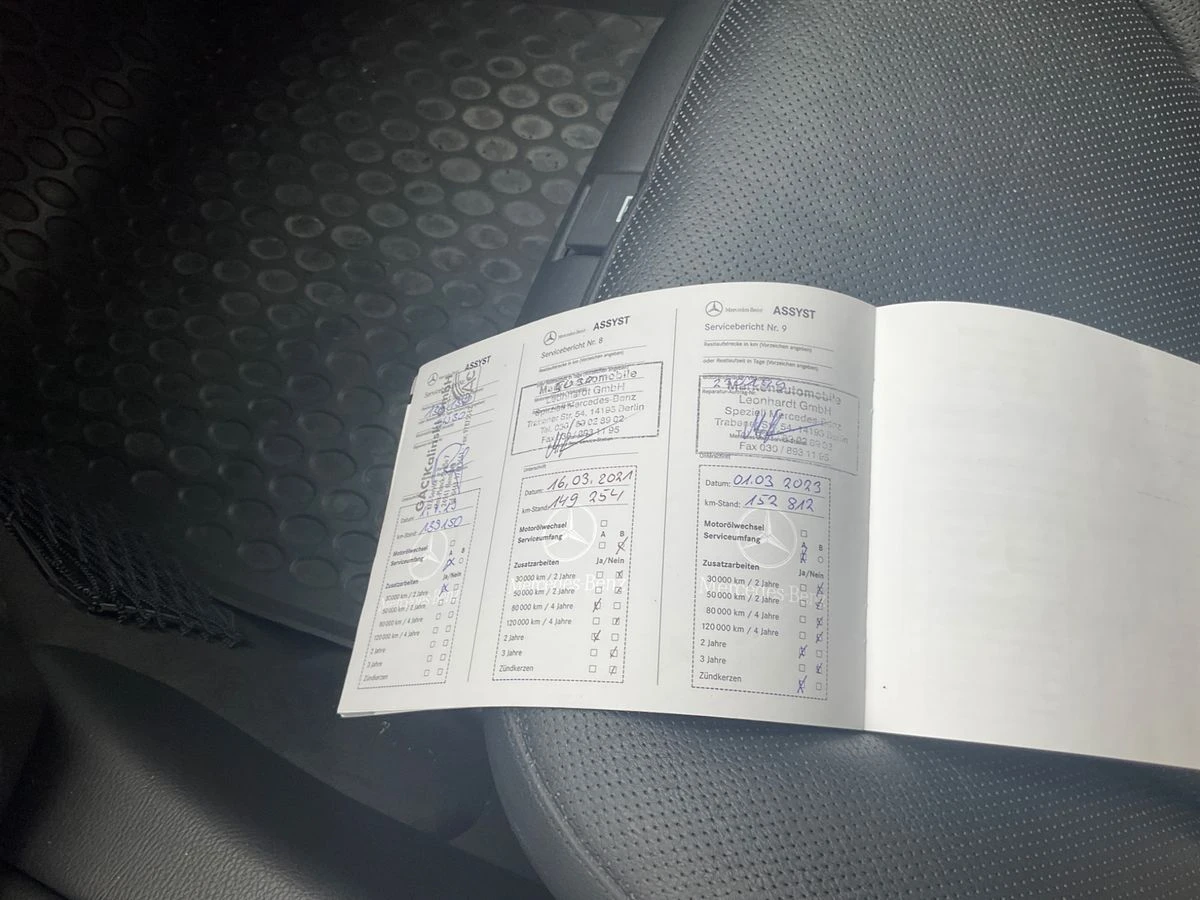 Mercedes-Benz ASSYST
GAC|Kalinski
Datum:
km-Stand: 139150
Motorölwechsel
Serviceumfang
A
Zusatzarbeiten
Ja/Nein
30 000 km / 2 Jahre
50 000 km / 2 Jahre
80 000 km / 4 Jahre
120 000 km / 4 Jahre
2 Jahre
3 Jahre
Zündkerzen
Mercedes-Benz ASSYST
Servicebericht Nr. 8
Restlaufstrecke in km (Vorzeichen angeben)
Leonhardt GmbH
Speziell Mercedes-Benz
Trabener Str. 54, 14193 Berlin
Tel. 030 / 893 11 95
Unterschrift
Datum: 16.03.2021
km-Stand: 149 254
Motorölwechsel
Serviceumfang
A B
Zusatzarbeiten Ja/Nein
30 000 km / 2 Jahre
50 000 km / 2 Jahre
80 000 km / 4 Jahre
120 000 km / 4 Jahre
2 Jahre
3 Jahre
Zündkerzen
Mercedes-Benz
Mercedes-Benz ASSYST
Servicebericht Nr. 9
Restlaufstrecke in km (Vorzeichen angeben)
oder Restlaufzeit in Tage (Vorzeichen angeben)
Reparatur-Auftrag-Nr.
Leonhardt GmbH
Speziell Mercedes-Benz
Trabener Str. 54, 14193 Berlin
Fax 030 / 893 11 95
Unterschrift
Datum: 01.03 2023
km-Stand: 152 812
Motorölwechsel
Serviceumfang
A B
Zusatzarbeiten Ja/Nein
30 000 km / 2 Jahre
50 000 km / 2 Jahre
80 000 km / 4 Jahre
120 000 km / 4 Jahre
2 Jahre
3 Jahre
Zündkerzen
Mercedes-Benz